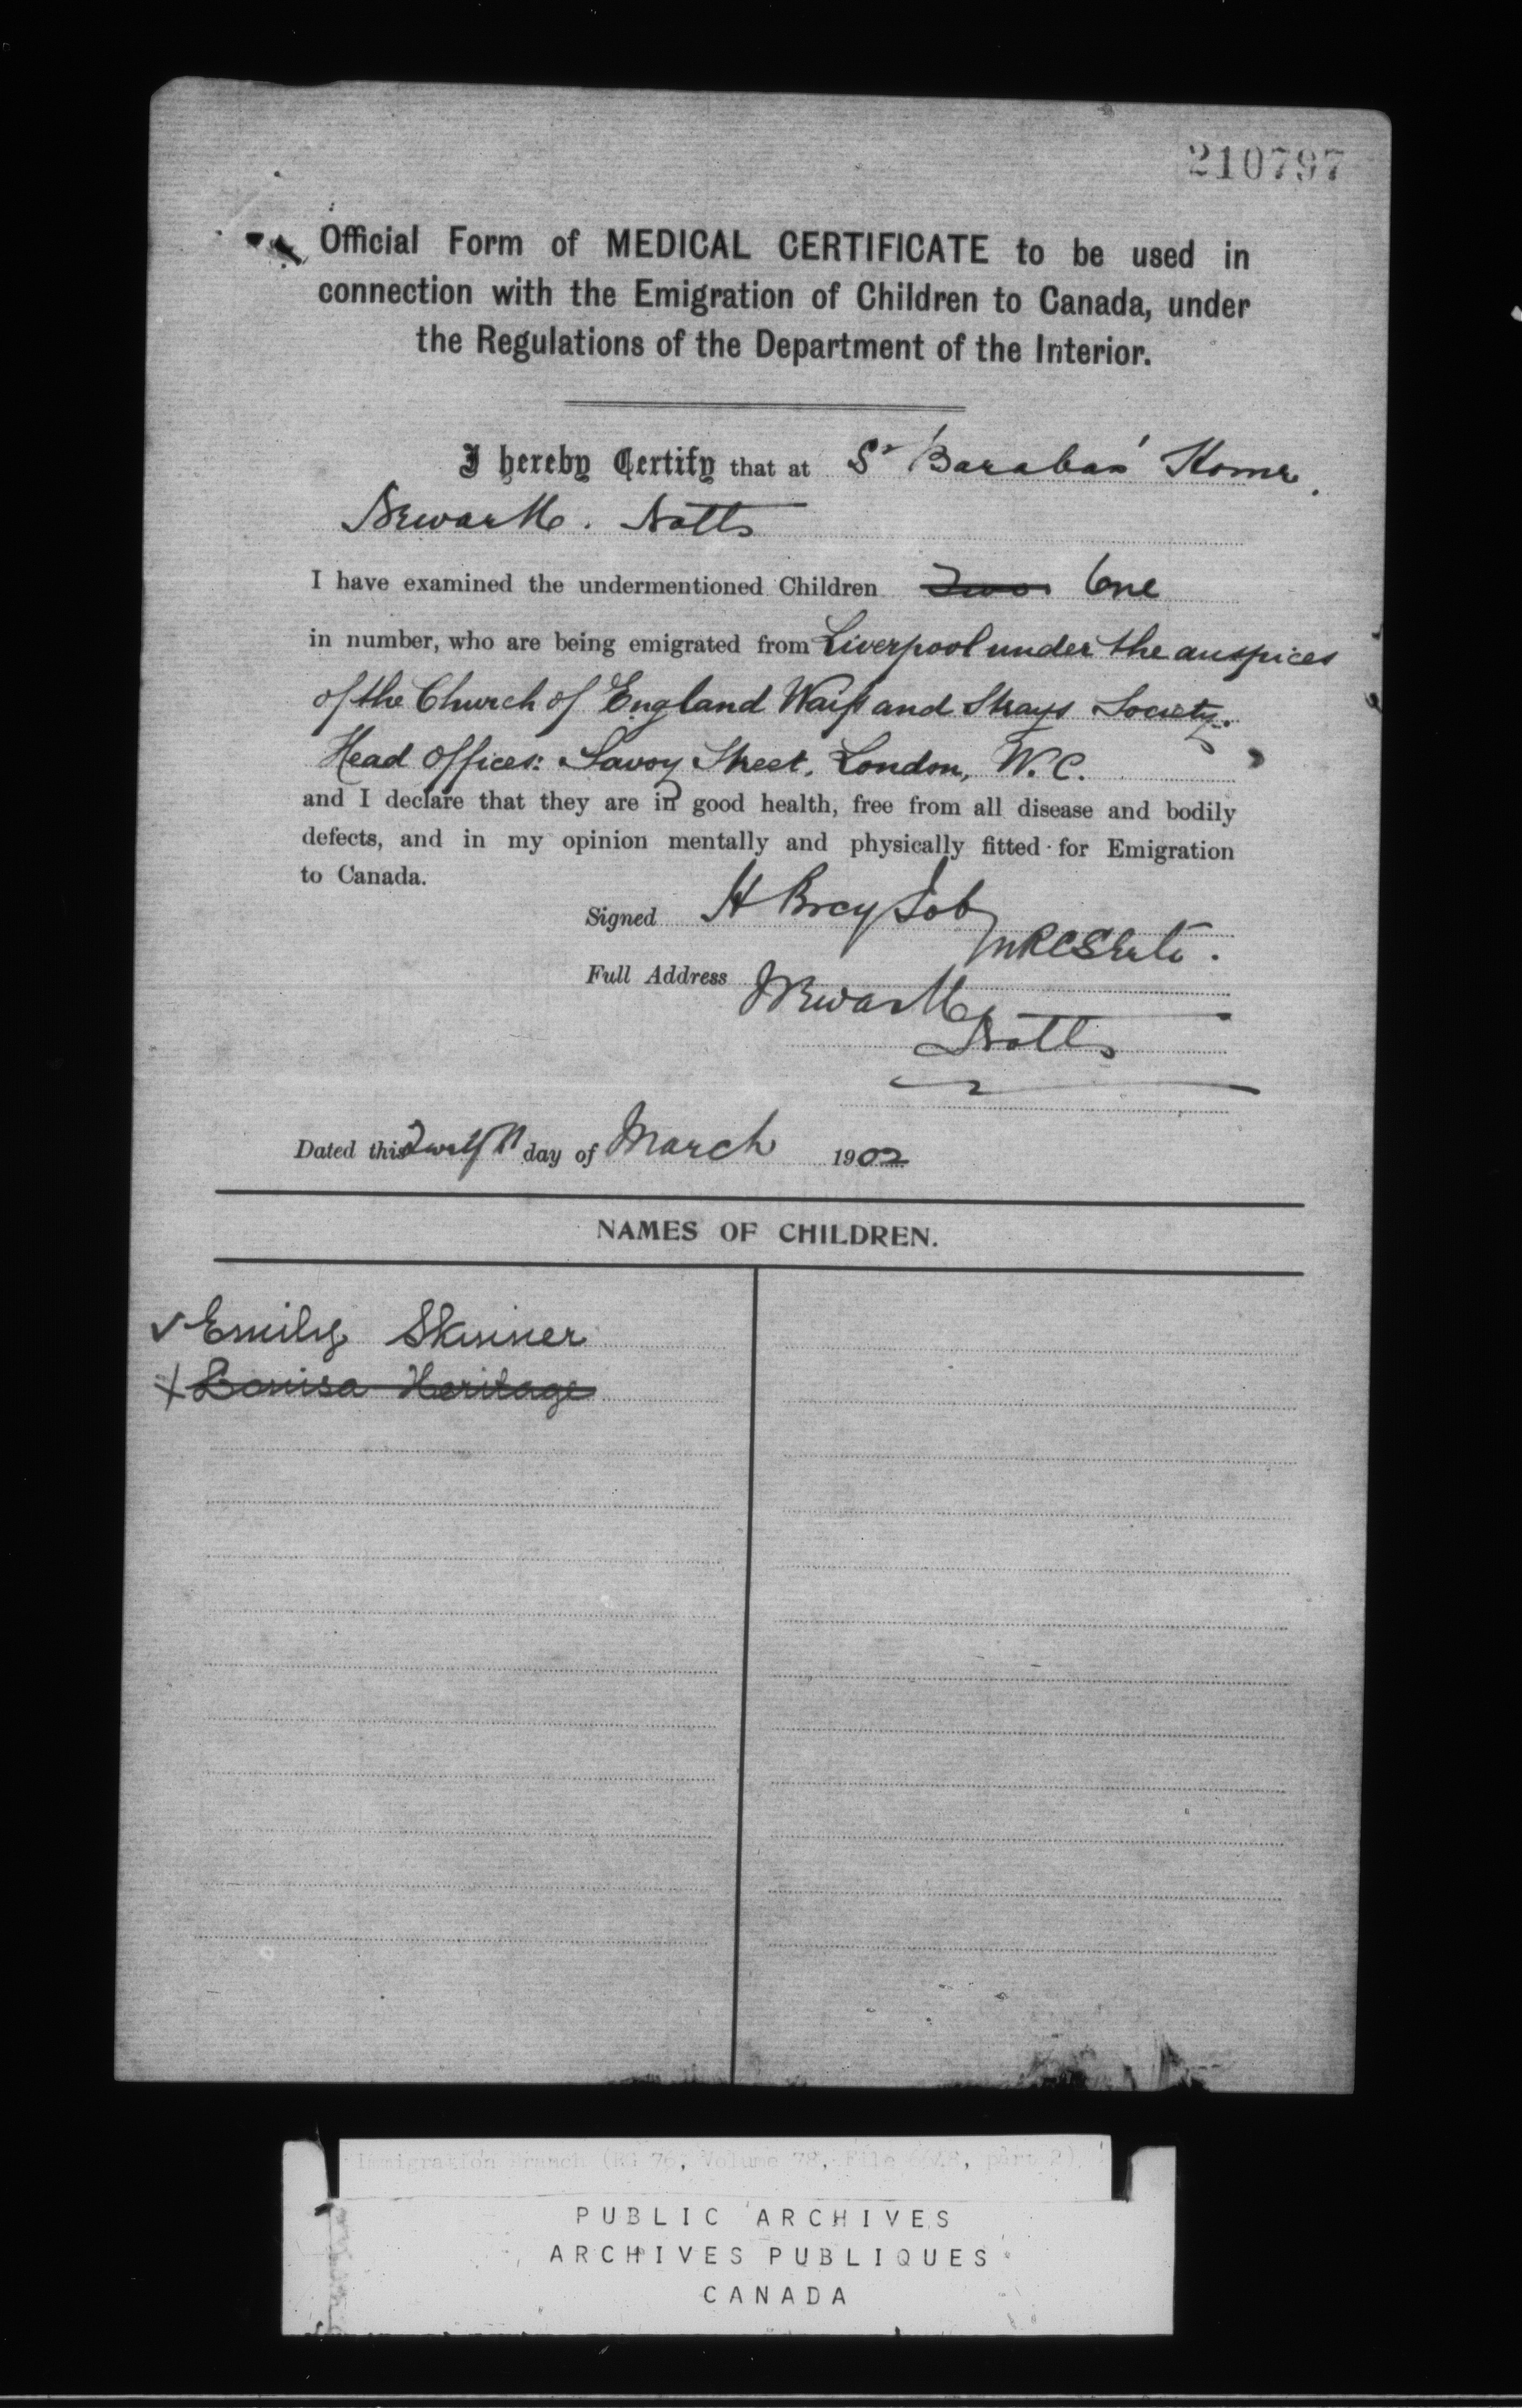 210797
Official Form of MEDICAL CERTIFICATE to be used in
connection with the Emigration of Children to Canada, under
the Regulations of the Department of the Interior.
I hereby Certify that at St Barabas' Home.
Newark. Notts
I have examined the undermentioned Children Two One
in number, who are being emigrated from Liverpool under the auspices
of the Church of England Waifs and Strays Society.
Head Offices: Savoy Street, London, W.C.
and I declare that they are in good health, free from all disease and bodily
defects, and in my opinion mentally and physically fitted for Emigration
to Canada.
Signed H
MRCS
Full Address Newark
Notts
Dated this Twelfth day of March 1902
NAMES OF CHILDREN.
Emily Skinner
Louisa Heritage
Immigration Branch (RG 76, Volume 78, File part 2)
PUBLIC ARCHIVES
ARCHIVES PUBLIQUES
CANADA